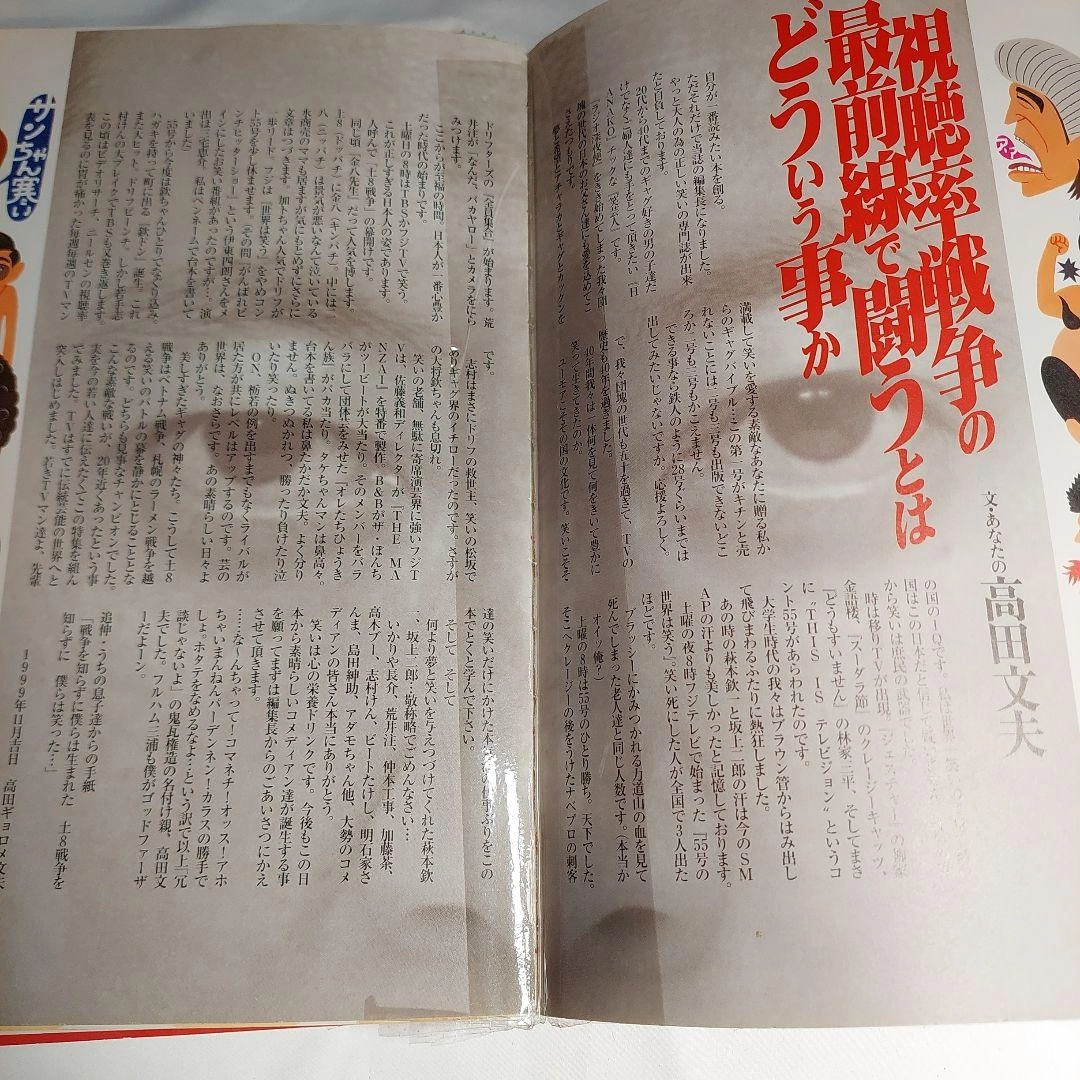 視聴率戦争の
最前線で闘うとは
どういう事か
文・あなたの高田文夫
自分が一番読みたい本を創る。
ただそれだけで当誌の編集長になりました。
やっと大人の為の正しい笑いの専門誌が出来
たと自負しております。
20代から40代までのギャグ好きの男の子達だ
けでなくご婦人達にも手をとって頂きたい「日
ANAKO」チックな「笑芸人」です。
「ラジオ深夜便」をきき始めてしまった我々団
塊の世代の日本のお父さん達にも愛を込めてこ
さえたつもりです。
満載して笑いを愛する素敵なあなたに贈る私か
らのギャグバイブル…この第一号がキチンと売
れないことには二号も三号も出版できないどこ
ろか二号も三号もかこえません。
できる事なら鉄人のように28号くらいまでは
出してみたいじゃないですか。応援よろしく。
で、我々団塊の世代も五十を過ぎて、TVの
歴史も40年を過ぎました。
40年間我々は一体何を見て何をきいて豊かに
笑って生きてきたのか。
ユーモアこそその国の文化です。笑いこそそ
の国のIQです。
国はこの日本だと信じて
から笑いは庶民の武器で
時は移りTVが出現。「ジェスチャー」の柳家
金語楼、「スーダラ節」のクレージーキャッツ、
「どうもすいません」の林家三平、そしてまさ
に“THIS IS テレビジョン”というコ
ント55号があらわれたのです。
大学生時代の我々はブラウン管からはみ出し
て飛びまわるふたりに熱狂しました。
あの時の萩本欽一と坂上二郎の汗は今のSM
APの汗よりも美しかったと記憶しております。
土曜の夜8時フジテレビで始まった「55号の
世界は笑う」。笑い死にした人が全国で3人出た
ほどです。
ブラッシーにかみつかれる力道山の血を見て
死んでしまった老人達と同じ人数です。（本当か
オイ／俺！）
土曜の8時は55号のひとり勝ち。天下でした。
そこへクレージーの後をうけたナベプロの刺客
ドリフターズの「全員集合」が始まります。荒
井注が「なんだ、バカヤロー」とカメラをにら
みつけます。
ここからが至福の時間、日本人が一番心豊か
だった時代の始まりです。
土曜日の8時はTBSかフジTVで笑う。
これが正しき日本人の姿であります。
人呼んで「土8戦争」の幕開けです。
同じ頃「金八先生」だって人気を博します。
土8（ドッパチ）に金八（キンパチ）。中には、
八二（ニッパチ）は景気が悪いなんて泣いている
水商売のママも居ますが気にもとめずにさらに
文章はつづきます。加トちゃん人気でドリフが
一歩リード。フジは「世界は笑う」をやめコン
ト55号を少し休ませます。「その間「がんばれピ
ンチヒッターショー」という伊東四朗さんをメ
インにしたお笑い番組があったのですが…、演
出は三宅恵介、私はペンネームで台本を書いて
いました」
55号から今度は欽ちゃんひとりでなぐり込み。
ハガキを持って町に出る「欽ドン」誕生。これ
また大ヒット、ドリフピーンチ。しかし若手志
村けんの大ブレイクでTBSも又巻き返します。
この頃はビデオリサーチ、ニールセンの視聴率
表を見るのに胃が痛かった毎週毎週のTVマン
です。
志村はまさにドリフの救世主、笑いの松坂で
ありギャグ界のイチローだったのです。さすが
の大将欽ちゃんも息切れ。
笑いの老舗、無駄に寄席演芸界に強いフジT
Vは、佐藤義和ディレクターが「THE MA
NZAI」を特番で製作。B&Bがザ・ぼんち
がツービートが大当たり。そのメンバーをバラ
バラにして団体芸をみせた「オレたちひょうき
ん族」がバカ当たり。タケちゃんマンは鼻高々。
台本を書いてる私は鼻たかだか文夫。よく分り
ません。ぬきつぬかれつ、勝ったり負けたり泣
いたり笑ったり。
ON、栃若の例を出すまでもなくライバルが
居た方が共にレベルはアップするのです。芸の
世界は、なおさらです。あの素晴らしい日々よ
ありがとう。
美しすぎたギャグの神々たち。こうして土8
戦争はベトナム戦争、札幌のラーメン戦争を越
える笑いのバトルの幕を静かにとじることとな
るのです。どちらも見事なチャンピオンでした。
こんな素敵な戦いが、20年近くあったという事
実を今の若い人達に伝えたくてこの特集を組ん
でみました。TVはすでに伝統芸能の世界へと
突入しはじめました。若きTVマン達よ、先輩
達の笑いだけにかけた
仕事ぶりをこの
本でとくと学んで下さい。
そして　そして
何より夢と笑いを与えつづけてくれた萩本欽
一、坂上二郎・敬称略でごめんなさい…
いかりや長介、荒井注、仲本工事、加藤茶、
高木ブー、志村けん、ビートたけし、明石家さ
んま、島田紳助、アダモちゃん他、大勢のコメ
ディアンの皆さん本当にありがとう。
笑いは心の栄養ドリンクです。今後もこの日
本から素晴らしいコメディアン達が誕生する事
を願ってまずは編集長からのごあいさつにかえ
させて頂きます。
……なーんちゃって！コマネチ！オッス！アホ
ちゃいまんねんパーデンネン！カラスの勝手で
しょ。ホタテをなめるなよ…という訳で以上「冗
談じゃないよ」の鬼瓦権造の名付け親、高田文
夫でした。フルハム三浦も僕がゴッドファーザ
ーだよーン。
追伸・うちの息子達からの手紙
「戦争を知らずに僕らは生まれた　土8戦争を
知らずに　僕らは笑った…」
1999年日月吉日　高田ギョロメ文夫
サンちゃん寒い